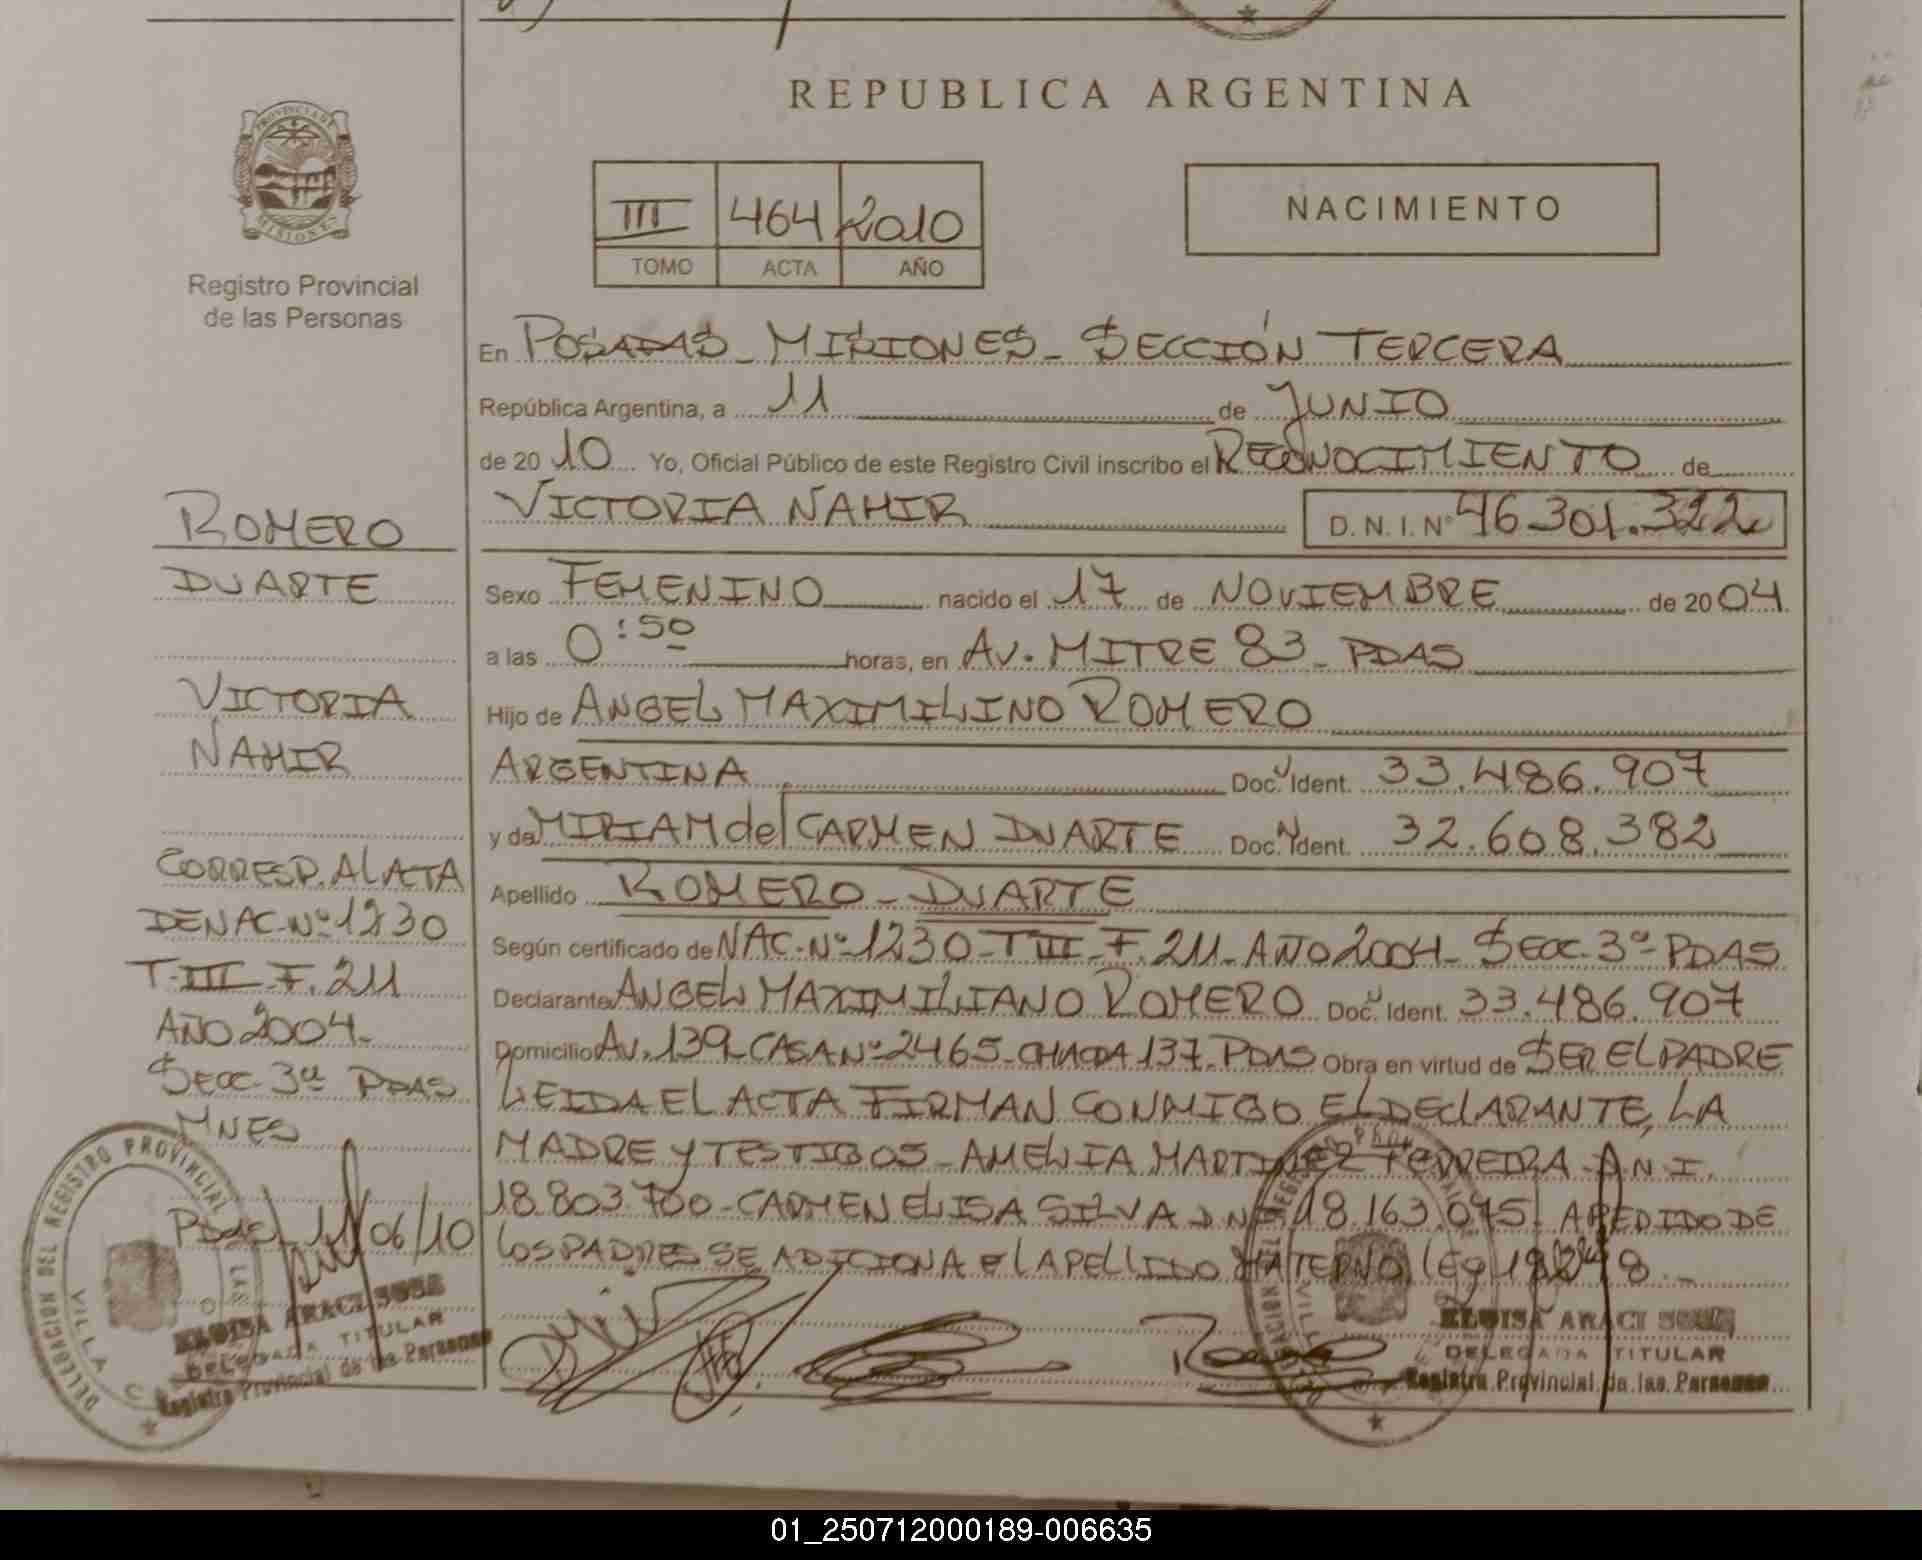 REPUBLICA ARGENTINA
PROVINCIA DE
MISIONES
Registro Provincial
de las Personas
III 464 2010
TOMO ACTA AÑO
NACIMIENTO
En POSADAS - MISIONES - SECCIÓN TERCERA
República Argentina, a 11 de JUNIO
de 2010 Yo, Oficial Público de este Registro Civil inscribo el RECONOCIMIENTO de
VICTORIA NAHIR D.N.I.Nº 46.301.322
Sexo FEMENINO nacido el 17 de NOVIEMBRE de 2004
a las 0:50 horas, en AV. MITRE 83 - PDAS
Hijo de ANGEL MAXIMILINO ROMERO
ARGENTINA Doc. Ident. 33.486.907
y de MIRIAM del CARMEN DUARTE Doc. Ident. 32.608.382
Apellido ROMERO - DUARTE
Según certificado de NAC. Nº 1230 - T III - F. 211 - AÑO 2004 - SECC. 3ª - PDAS
Declarante ANGEL MAXIMILIANO ROMERO Doc. Ident. 33.486.907
Domicilio AV. 139 - CASA Nº 2465 - CHACRA 137 - PDAS Obra en virtud de SER EL PADRE
LEIDA EL ACTA FIRMAN CONMIGO EL DEClARANTE, LA
MADRE Y TESTIGOS - AMELIA MARTINEZ FERREIRA - D.N.I.
18.803.700 - CARMEN ELISA SILVA D.N.I. 18.163.075 A PEDIDO DE
LOS PADRES SE ADICIONA el APELLIDO MATERNO LEY 18248 -
ROMERO
DUARTE
VICTORIA
NAHIR
CORRESP. AL ACTA
DE NAC. Nº 1230
T. III - F. 211
AÑO 2004 -
SECC. 3ª PDAS
MNES
Pdas 11/06/10
DELEGACION DEL REGISTRO PROVINCIAL
LAS
VILLA
ELOISA ARACI SOSA
DELEGADA TITULAR
Registro Provincial de las Personas
ELOISA ARACI SOSA
DELEGADA TITULAR
Registro Provincial de las Personas
01_250712000189-006635